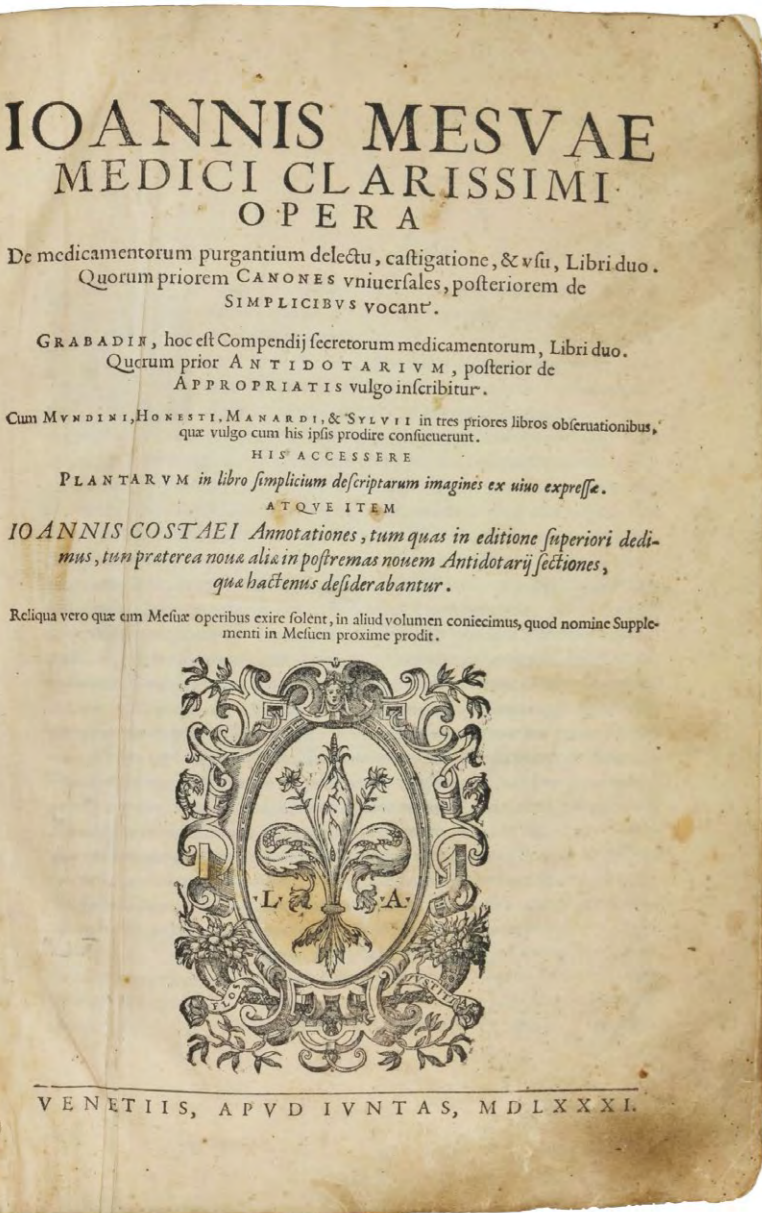 IOANNIS MESVAE
MEDICI CLARISSIMI
OPERA
De medicamentorum purgantium delectu, castigatione, & vsu, Libri duo.
Quorum priorem CANONES vniuersales, posteriorem de
SIMPLICIBVS vocant.
GRABADIN, hoc est Compendij secretorum medicamentorum, Libri duo.
Quorum prior ANTIDOTARIVM, posterior de
APPROPRIATIS vulgo inscribitur.
Cum MVNDINI, HONESTI, MANARDI, & SYLVII in tres priores libros obseruationibus,
quæ vulgo cum his ipsis prodire consueuerunt.
HIS ACCESSERE
PLANTARVM in libro simplicium descriptarum imagines ex uiuo expressæ.
ATQVE ITEM
IOANNIS COSTAEI Annotationes, tum quas in editione superiori dedi-
mus, tum præterea nouæ aliæ in postremas nouem Antidotarij sectiones,
quæ hactenus desiderabantur.
Reliqua vero quæ cum Mesuæ operibus exire solent, in aliud volumen coniecimus, quod nomine Supple-
menti in Mesuen proxime prodit.
·L· ·A·
FLOS IVSTITIAE
VENETIIS, APVD IVNTAS, MDLXXXI.